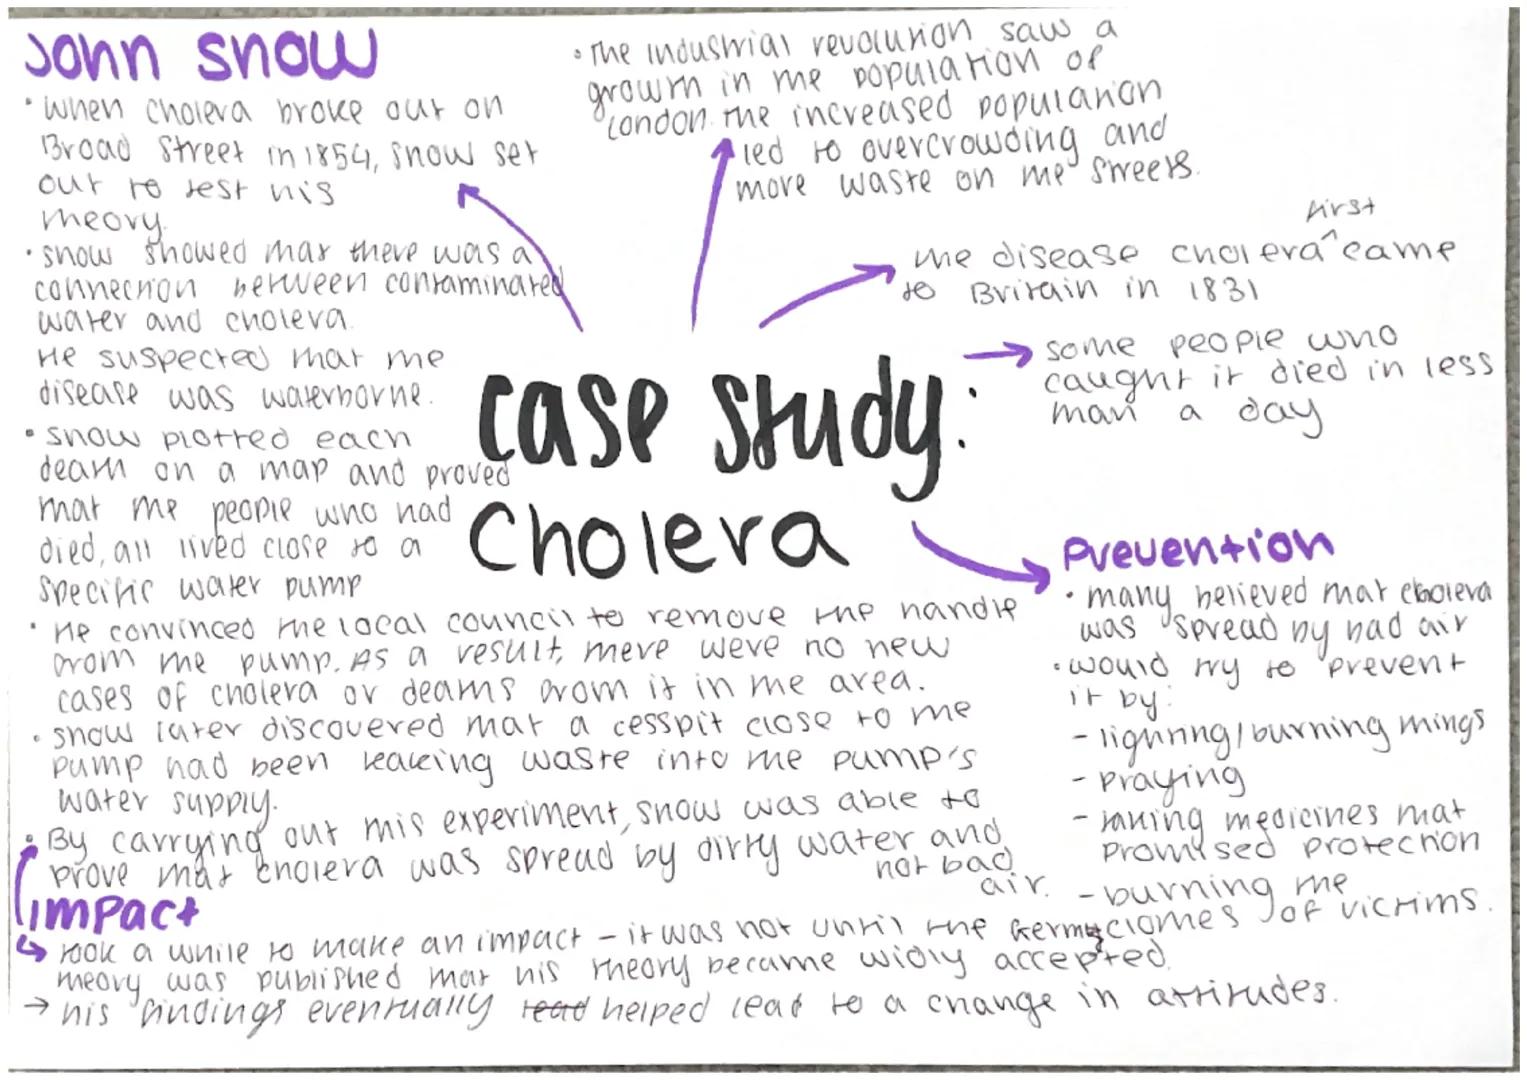 John Snow
• When cholera broke out on
Broad Street in 1854, Snow set
out to test his
theory.
• Snow showed that there was a
connection between contaminated
water and cholera.
He suspected that the
disease was waterborne.
• Snow plotted each
death on a map and proved
that the people who had
died, all lived close to a
specific water pump
• He convinced the local council to remove the handle
from the pump. As a result, there were no new
cases of cholera or deaths from it in the area.
• Snow later discovered that a cesspit close to the
pump had been leaking waste into the pump's
water supply.
• By carrying out this experiment, Snow was able to
prove that cholera was spread by dirty water and
not bad
air.
Impact
↳ took a while to make an impact - it was not until the Germ
theory was published that his theory became widly accepted.
→ his findings eventually lead helped lead to a change in attitudes.
• The industrial revolution saw a
growth in the population of
London. The increased population
led to overcrowding and
more waste on the streets.
first
the disease cholera ^ came
to Britain in 1831
some people who
caught it died in less
than a day
Case study:
Cholera
Prevention
• many believed that cholera
was spread by bad air
• would try to prevent
it by:
- lighting/burning things
- praying
- taking medicines that
promised protection
- burning the
clothes of victims.